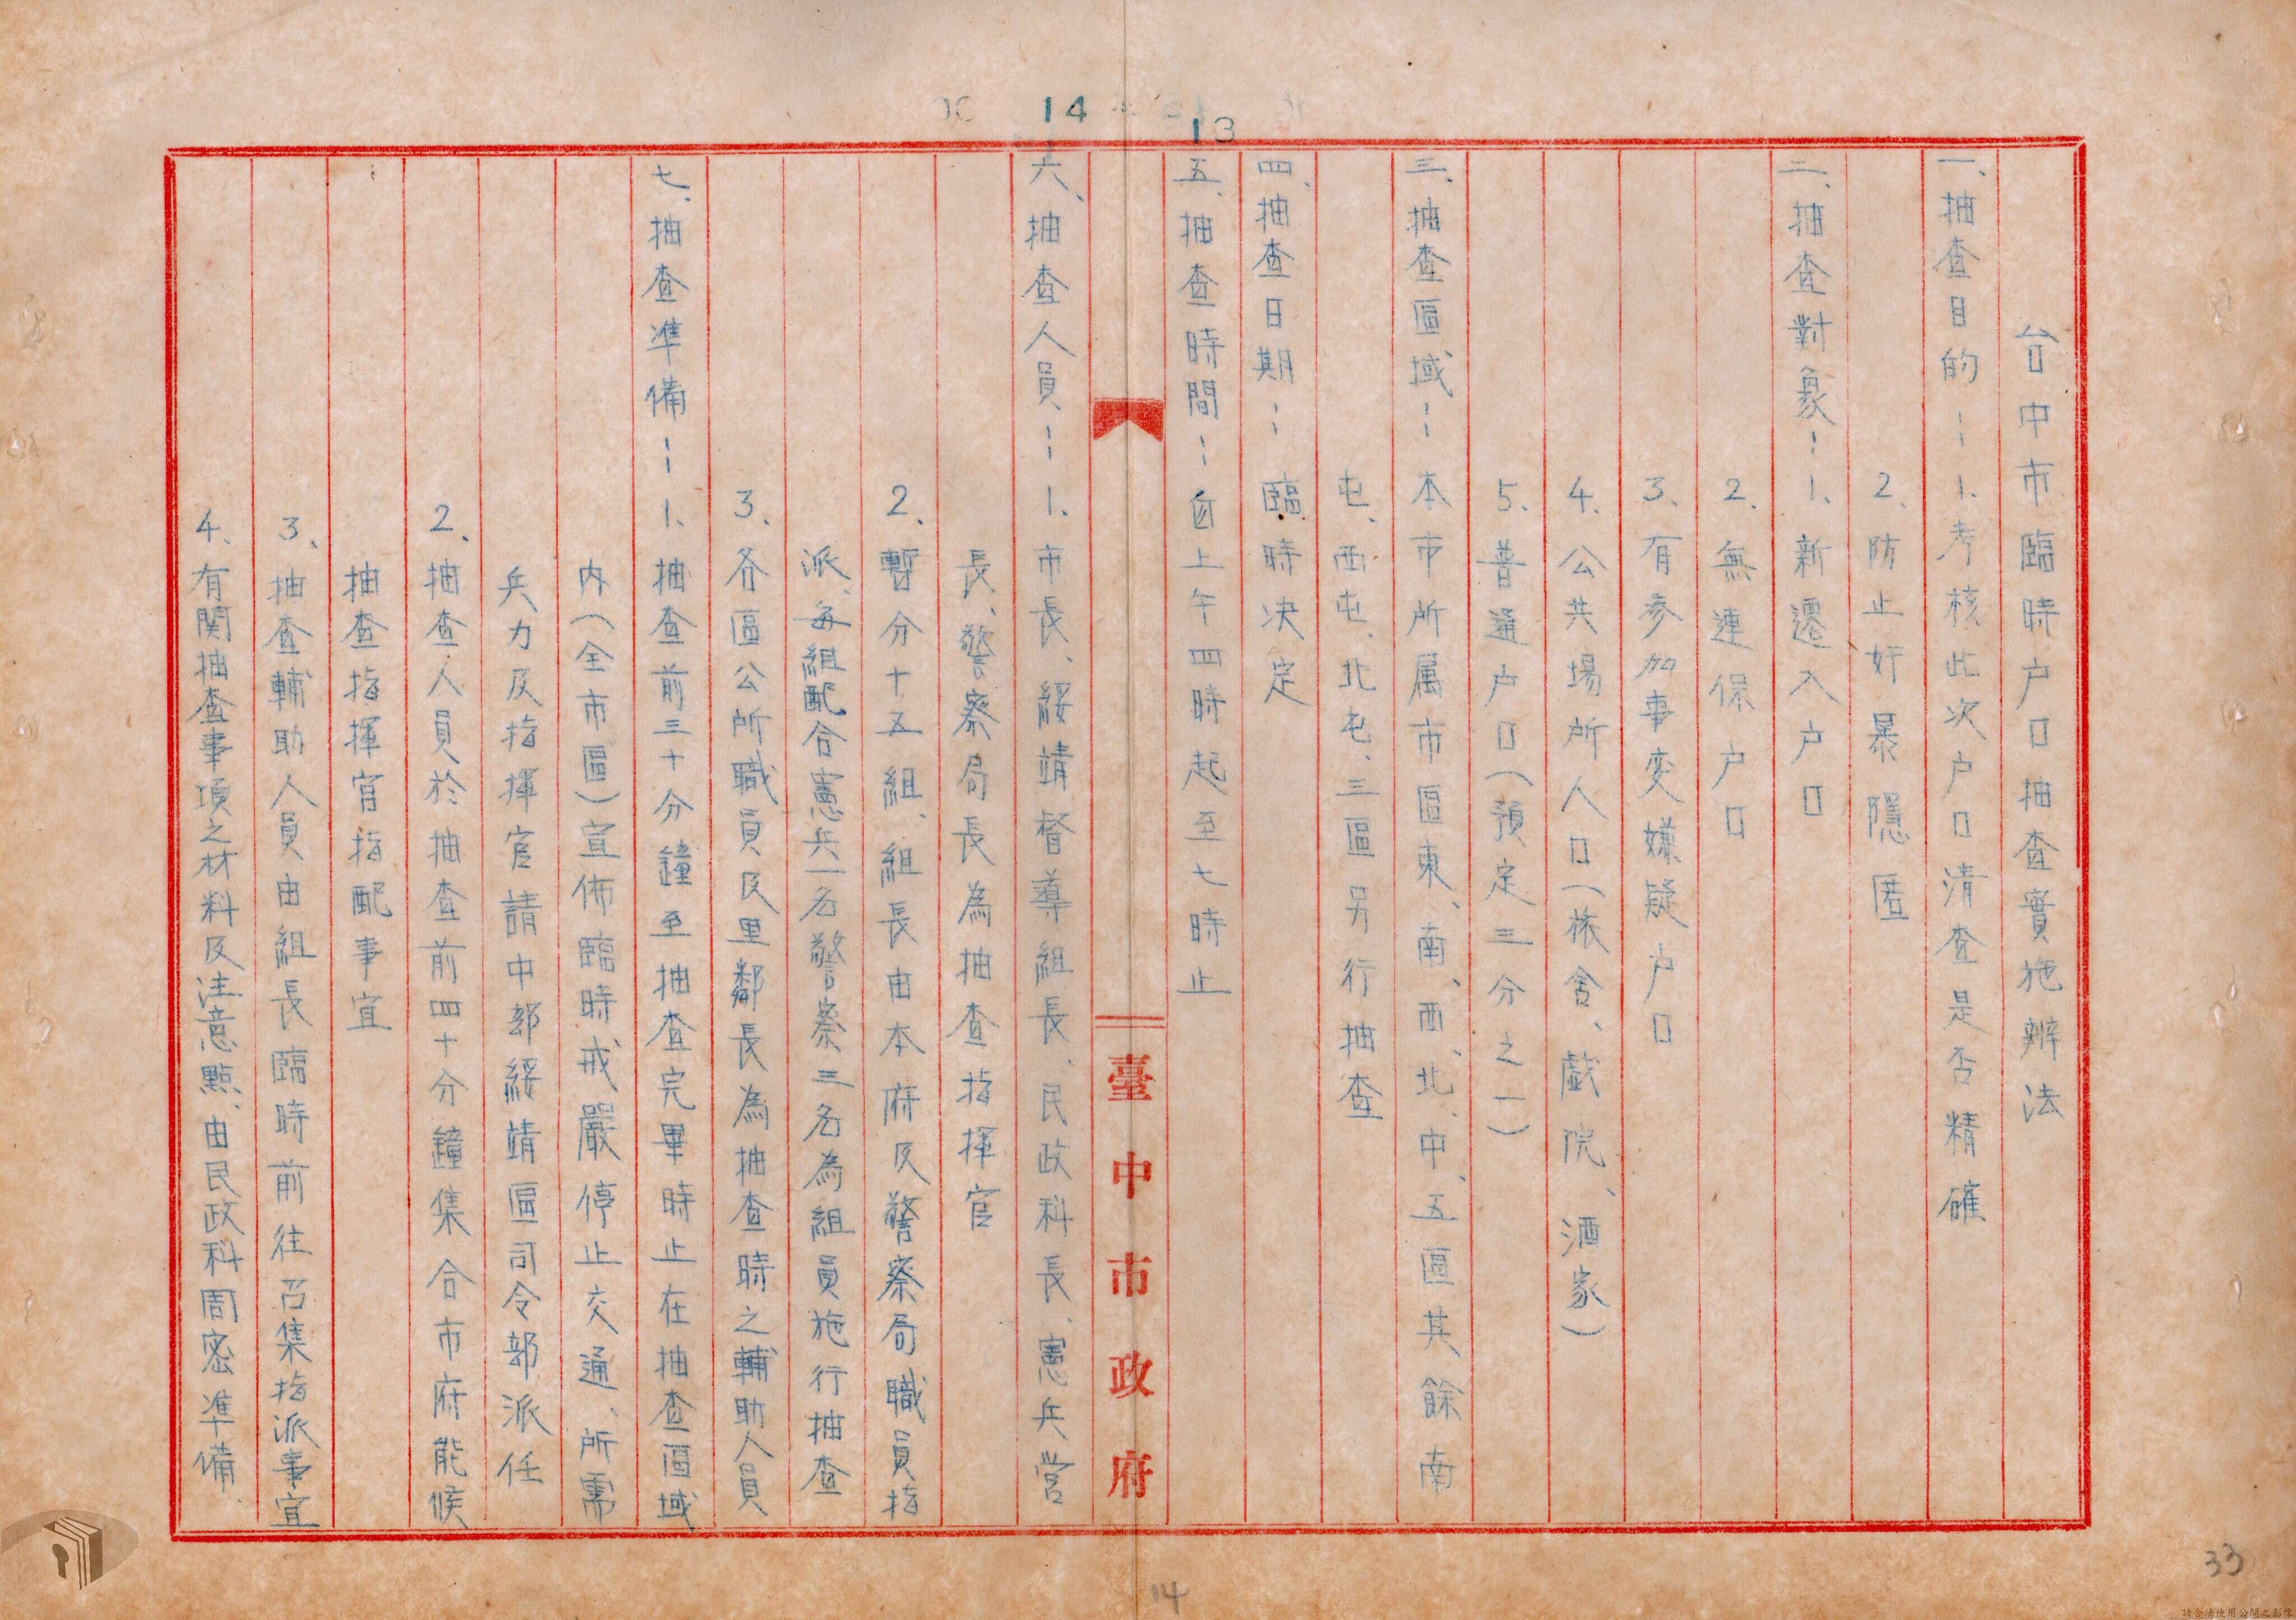 台中市臨時户口抽查實施辨法
一、抽查目的：1、考核此次户口清查是否精確
2、防止奸暴隱匿
二、抽查對象：1、新遷入户口
2、無連保户口
3、有參加事変嫌疑户口
4、公共場所人口（旅舍、戯院、酒家）
5、普通户口（預定三分之一）
三、抽查區域：本市所属市區東、南、西、北、中、五區其餘南
屯、西屯、北屯、三區另行抽查
四、抽查日期：臨時决定
五、抽查時間：自上午四時起至七時止
臺中市政府
六、抽查人員：1、市長、綏靖督導組長、民政科長、憲兵営
長、警察局長為抽查指揮官
2、暫分十五組、組長由本府及警察局職員指
派、每組配合憲兵一名警察三名為組員施行抽查
3、各區公所職員及里鄰長為抽查時之輔助人員
七、抽查準備：1、抽查前三十分鐘至抽查完畢時止在抽查區域
内（全市區）宣佈臨時戒嚴停止交通、所需
兵力及指揮官請中部綏靖區司令部派任
2、抽查人員於抽查前四十分鐘集合市府能候
抽查指揮官指配事宜
3、抽查輔助人員由組長臨時前往召集指派事宜
4、有関抽查事項之材料及注意點、由民政科周密準備、
14
13
14
33
請合法使用公開之影像